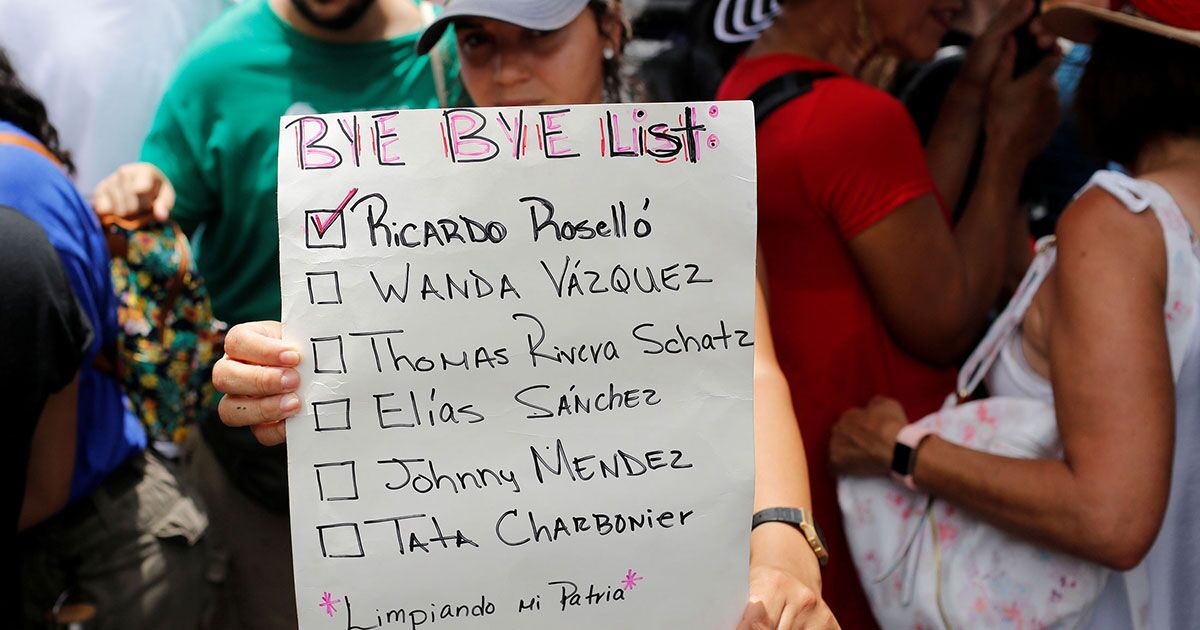 BYE BYE List:
Ricardo Roselló
Wanda Vázquez
Thomas Rivera Schatz
Elías Sánchez
Johnny Mendez
Tata Charbonier
*Limpiando mi Patria*